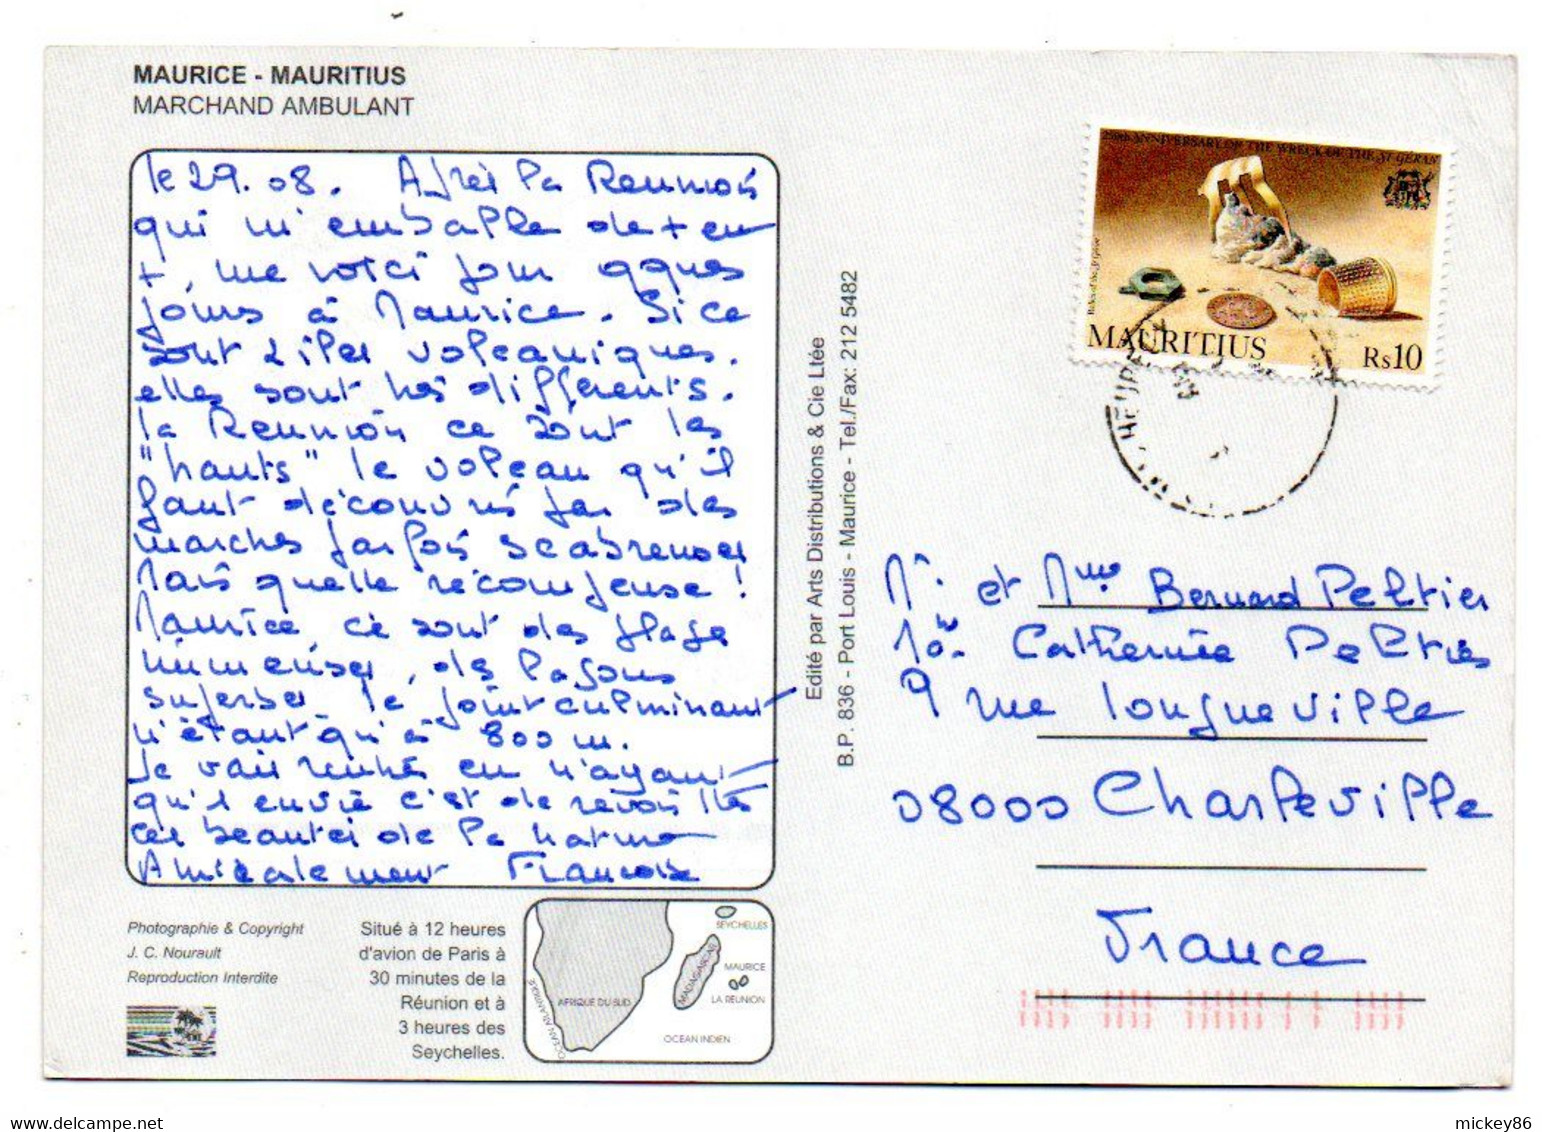 MAURICE - MAURITIUS
MARCHAND AMBULANT
le 29.08. Après la Réunion
qui m'emballe de + en
+, me voici pour qques
jours à Maurice. Si ce
sont 2 îles volcaniques.
elles sont très différents.
la Réunion ce sont les
"hauts" le volcan qu'il
faut découvrir par des
marches parfois scabreuses
Mais quelle récompense !
Maurice, ce sont des plages
immenses, des lagons
superbes le point culminant
n'étant qu'à 800 m.
Je vais rentrer en n'ayant
qu'1 envie c'est de revoir ttes
ces beautés de la nature
Amicalement Françoise
Photographie & Copyright
J. C. Nourault
Reproduction Interdite
Situé à 12 heures
d'avion de Paris à
30 minutes de la
Réunion et à
3 heures des
Seychelles.
SEYCHELLES
MADAGASCAR
MAURICE
LA REUNION
AFRIQUE DU SUD
OCEAN ATLANTIQUE
OCEAN INDIEN
Edité par Arts Distributions & Cie Ltée
B.P. 836 - Port Louis - Maurice - Tel./Fax: 212 5482
250th ANNIVERSARY OF THE WRECK OF THE ST. GERAN
MAURITIUS
Rs10
Mr. et Mme Bernard Peltier
Catherine Peltier
9 rue Longueville
08000 Charleville
France
mickey86